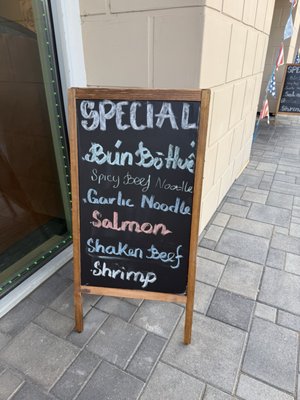 SPECIAL
Bún Bò Huế
Spicy Beef Noodle
Garlic Noodle
Salmon
Shaken Beef
Shrimp